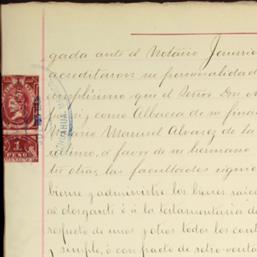 gada ante el Notario Jann
acreditaron su personalidad
simplísimo que el Señor Don M
y como Albacea de su fina
Manuel Alvarez de la
á favor de su hermano
tio otras, las facultades sigui
bierne y administre los bienes raíce
el otorgante ó á la testamentaria de
respecto de unos y otros todos los cont
simple, ó con pacto de retro-venta
1
PESO